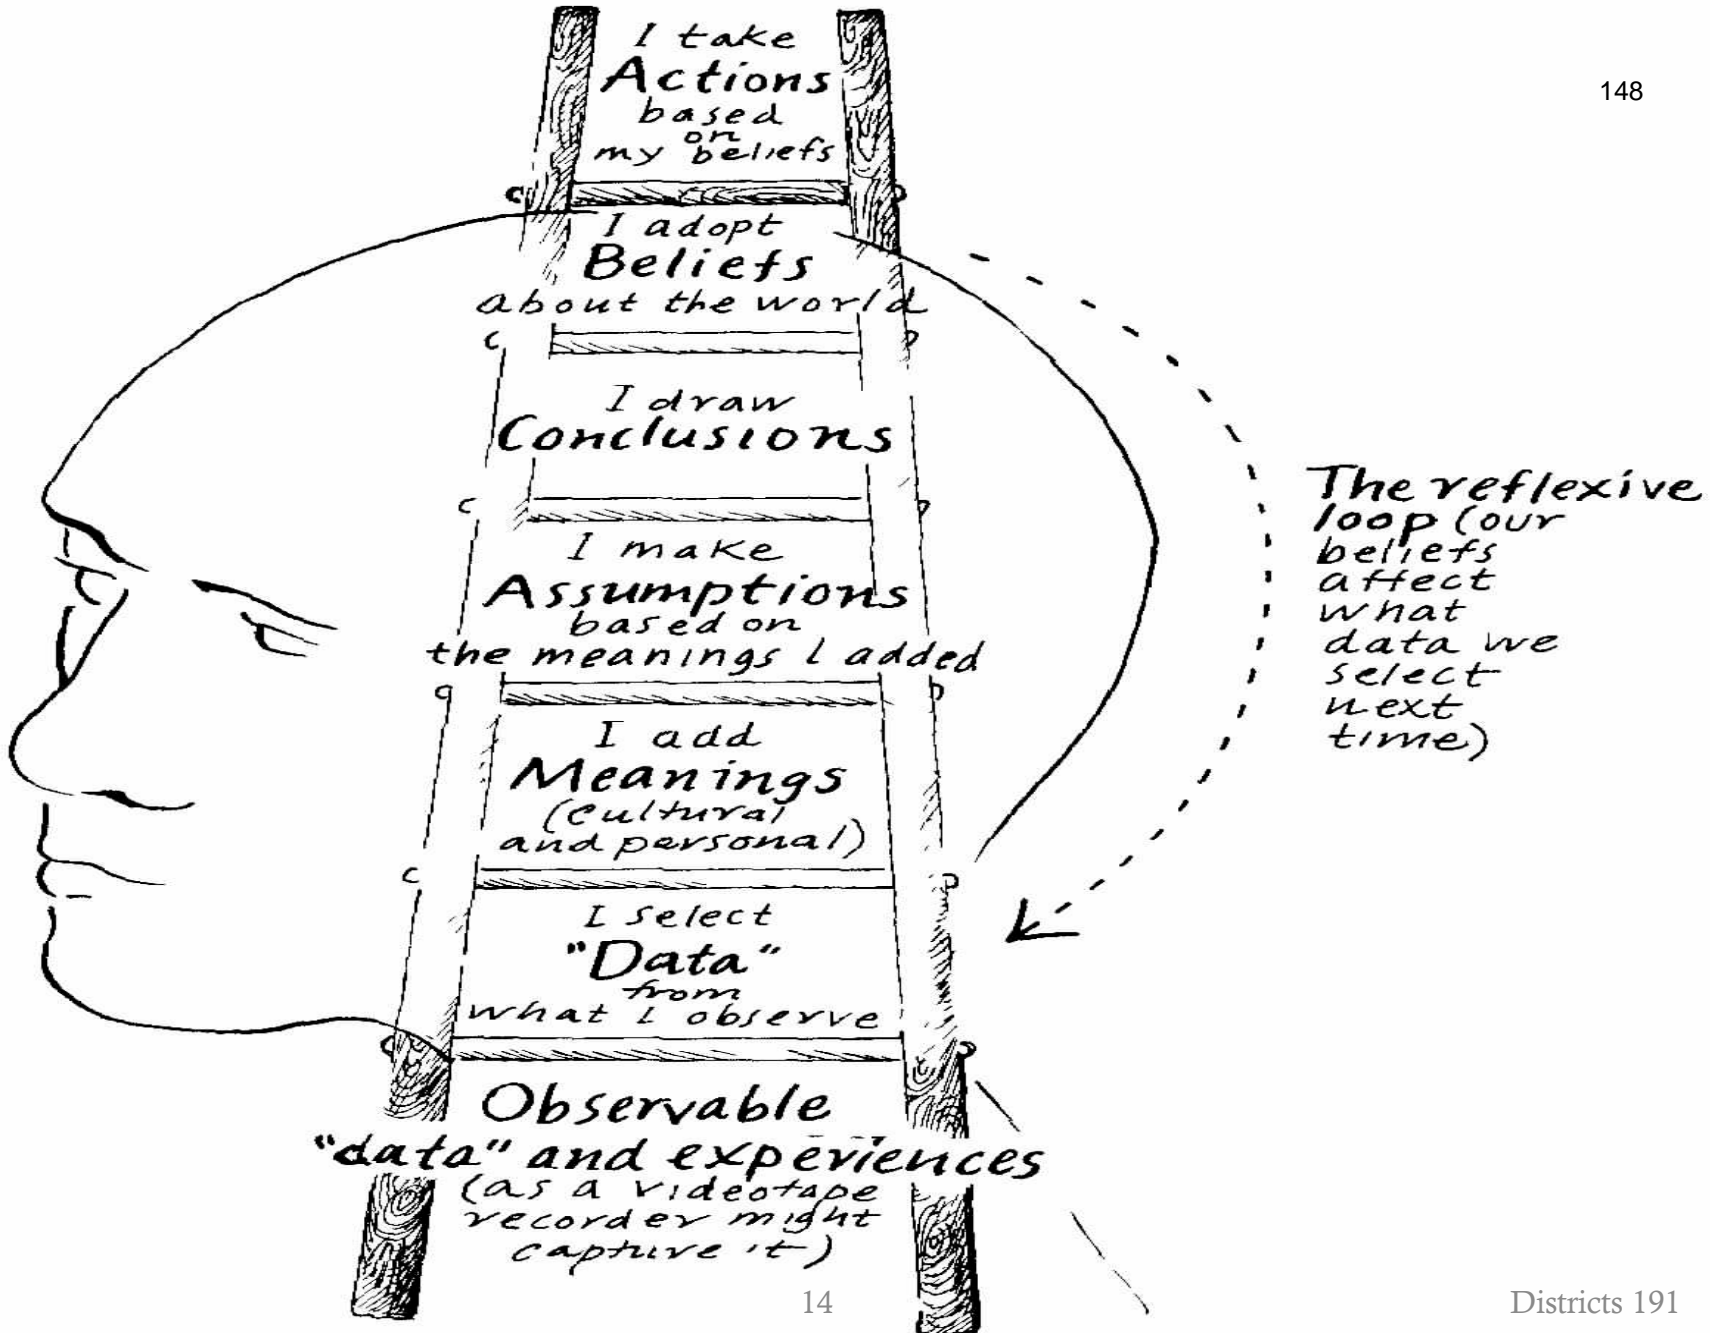 148
I take
Actions
based
on
my beliefs
I adopt
Beliefs
about the world
I draw
Conclusions
I make
Assumptions
based on
the meanings I added
I add
Meanings
(cultural
and personal)
I select
"Data"
from
what I observe
Observable
"data" and experiences
(as a videotape
recorder might
capture it)
The reflexive
loop (our
beliefs
affect
what
data we
select
next
time)
14
Districts 191